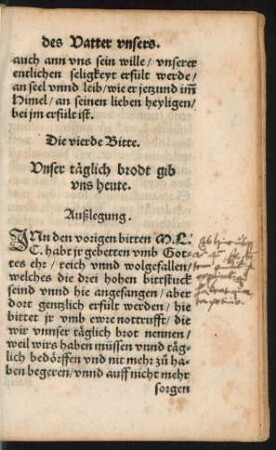 des Vatter vnsers.
auch ann vns sein wille / vnserer
entlichen seligkeyt erfült werde /
an seel vnnd leib / wie er jetzund im̃
Himel / an seinen lieben heyligen /
bei jm erfült ist.
Die vierde Bitte.
Vnser täglich brodt gib
vns heute.
Außlegung.
INn den vorigen bitten M. L.
C. habt jr gebetten vmb Got-
tes ehr / reich vnnd wolgefallen /
welches die drei hohen bittstuck
seind vnnd hie angefangen / aber
dort gentzlich erfült werden / hie
bittet jr vmb ewre notturfft / die
wir vnnser täglich brot nennen /
weil wirs haben müssen vnnd täg-
lich bedörffen vnd nit mehr zů ha-
ben begeren / vnnd auff nicht mehr
sorgen